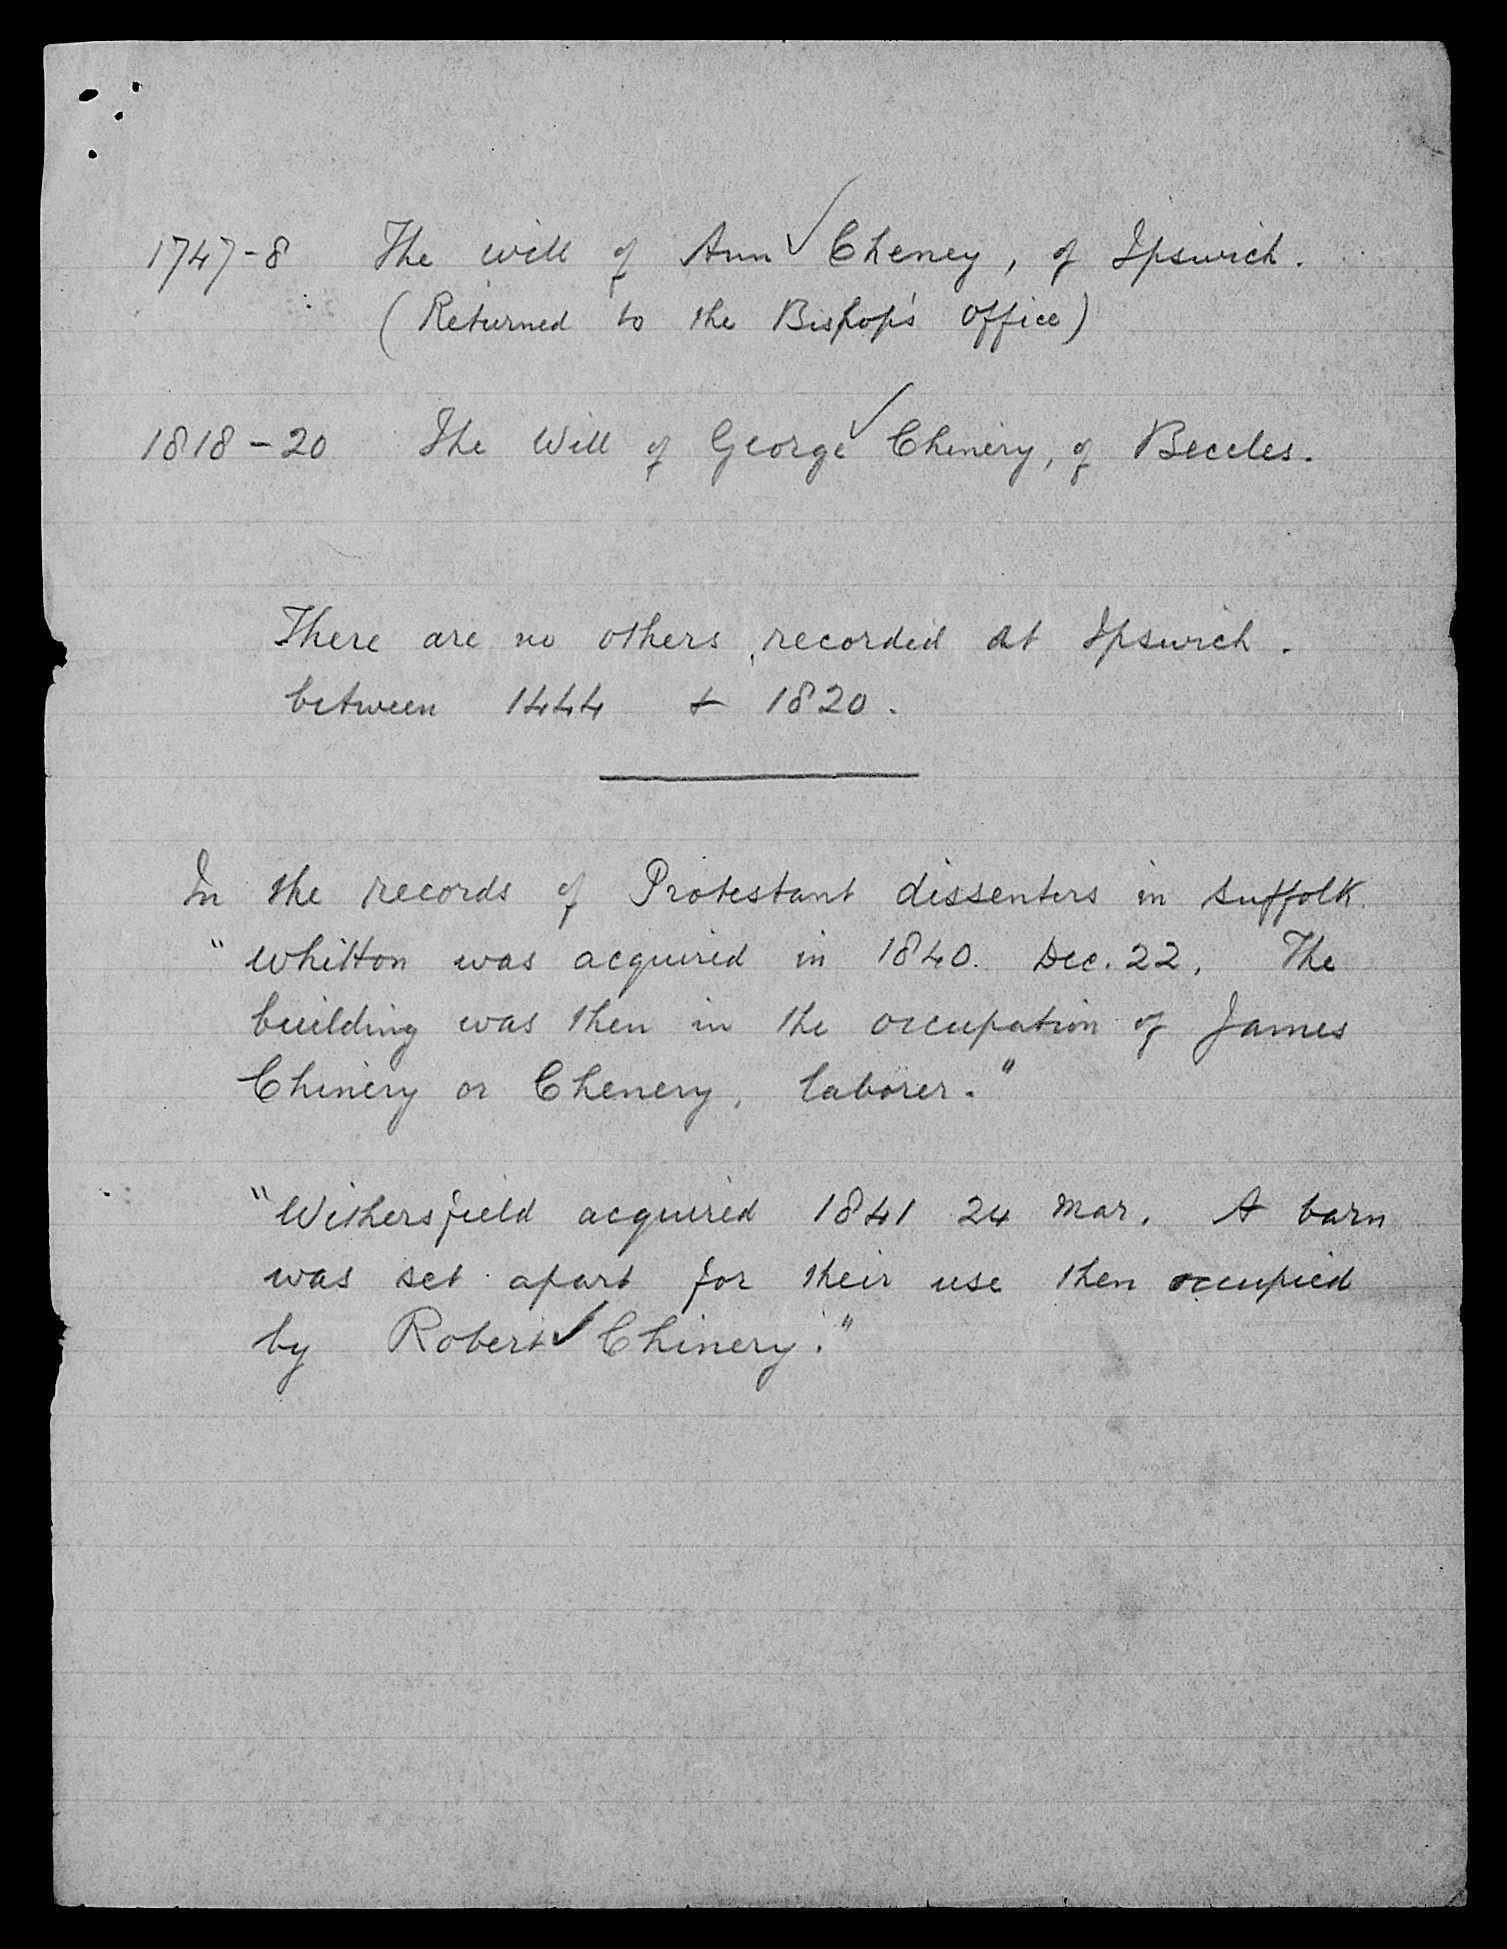 1747-8 The will of Ann ✓ Cheney, of Ipswich.
(Returned to the Bishop's office)
1818-20 The Will of George ✓ Chinery, of Beccles.
There are no others, recorded at Ipswich.
between 1444 & 1820.
In the records of Protestant dissenters in Suffolk.
"Whitton was acquired in 1840. Dec. 22. The
building was then in the occupation of James
Chinery or Chenery, laborer."
"Withersfield acquired 1841 24 Mar. A barn
was set apart for their use then occupied
by Robert ✓ Chinery."